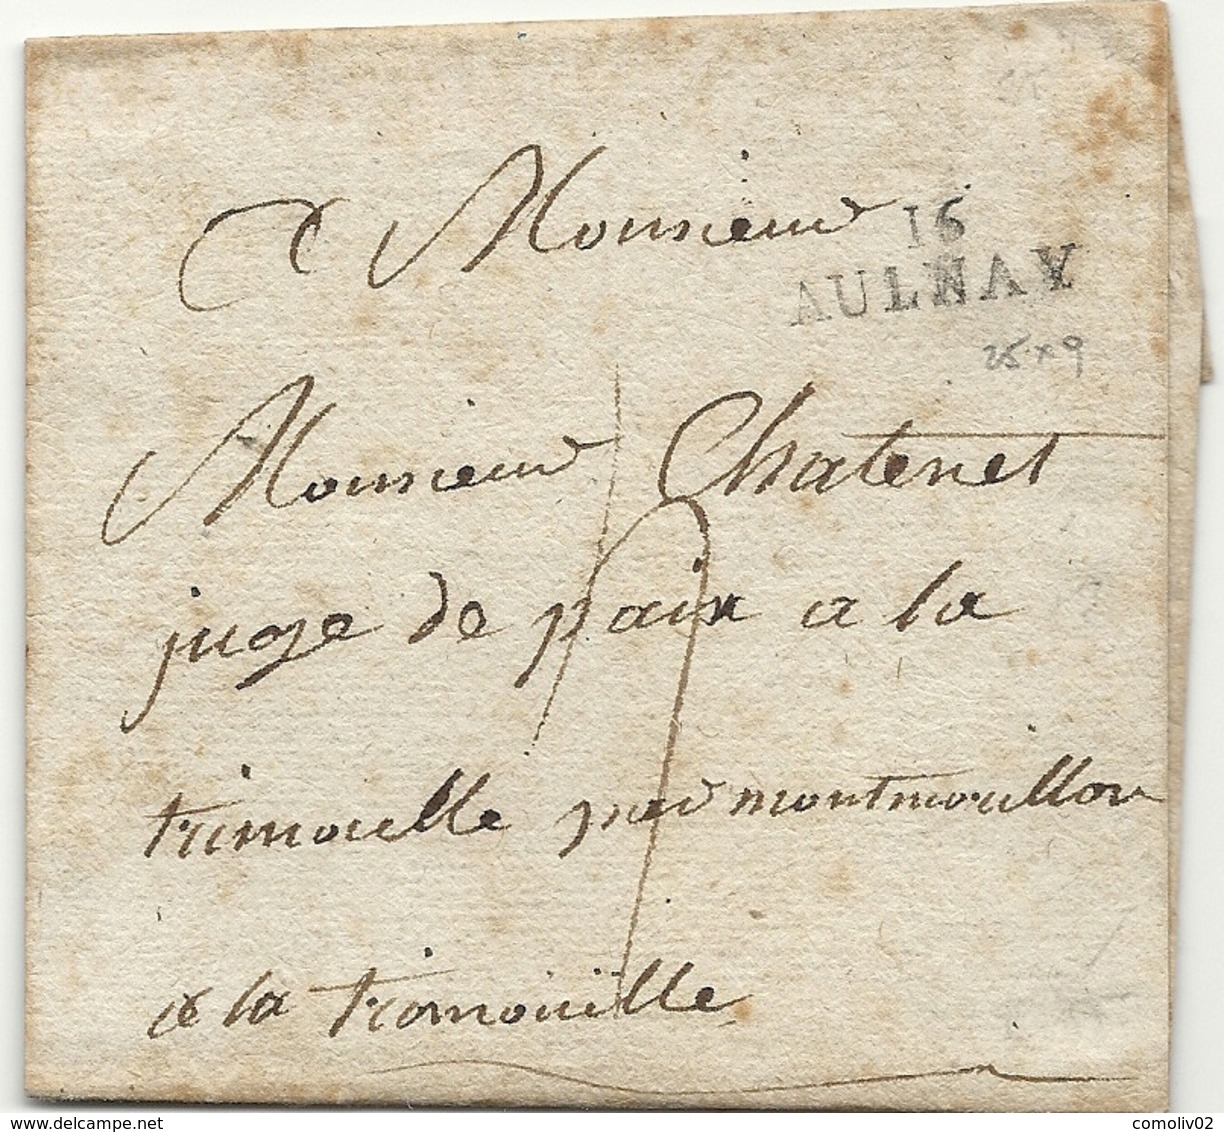 a Monsieur
16
AULNAY
25 x 9
Monsieur Chatenet
juge de paix a la
trimouille par montmorillon
a la trimouille
www.delcampe.net
comoliv02